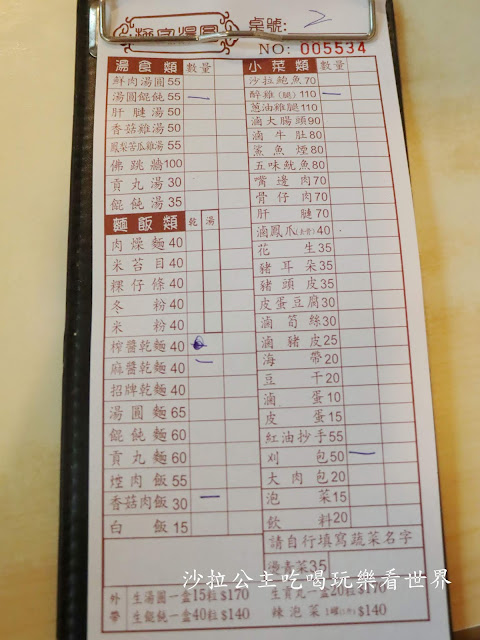 湯圓
桌號: 2
NO: 005534
湯食類 數量
鮮肉湯圓 55
湯圓餛飩 55 一
肝腱湯 50
香菇雞湯 50
鳳梨苦瓜雞湯 55
佛跳牆 100
貢丸湯 30
餛飩湯 35
麵飯類 乾 湯
肉燥麵 40
米苔目 40
粿仔條 40
冬粉 40
米粉 40
榨醬乾麵 40
麻醬乾麵 40 一
招牌乾麵 40
湯圓麵 65
餛飩麵 60
貢丸麵 60
焢肉飯 55
香菇肉飯 30 一
白飯 15
小菜類 數量
沙拉鮑魚 70
醉雞(腿) 110 一
蔥油雞腿 110
滷大腸頭 90
滷牛肚 80
鯊魚煙 80
五味魷魚 80
嘴邊肉 70
骨仔肉 70
肝腱 70
滷鳳爪(去骨) 40
花生 35
豬耳朵 35
豬頭皮 35
皮蛋豆腐 30
滷筍絲 30
滷豬皮 25
海帶 20
豆干 20
滷蛋 10
皮蛋 15
紅油抄手 55
刈包 50 一
大肉包 20
泡菜 15
飲料 20
請自行填寫蔬菜名字
燙青菜 35
外帶
生湯圓一盒15粒$170
生餛飩一盒40粒$140
生貢丸一盒20粒$170
辣泡菜 $140
沙拉公主吃喝玩樂看世界